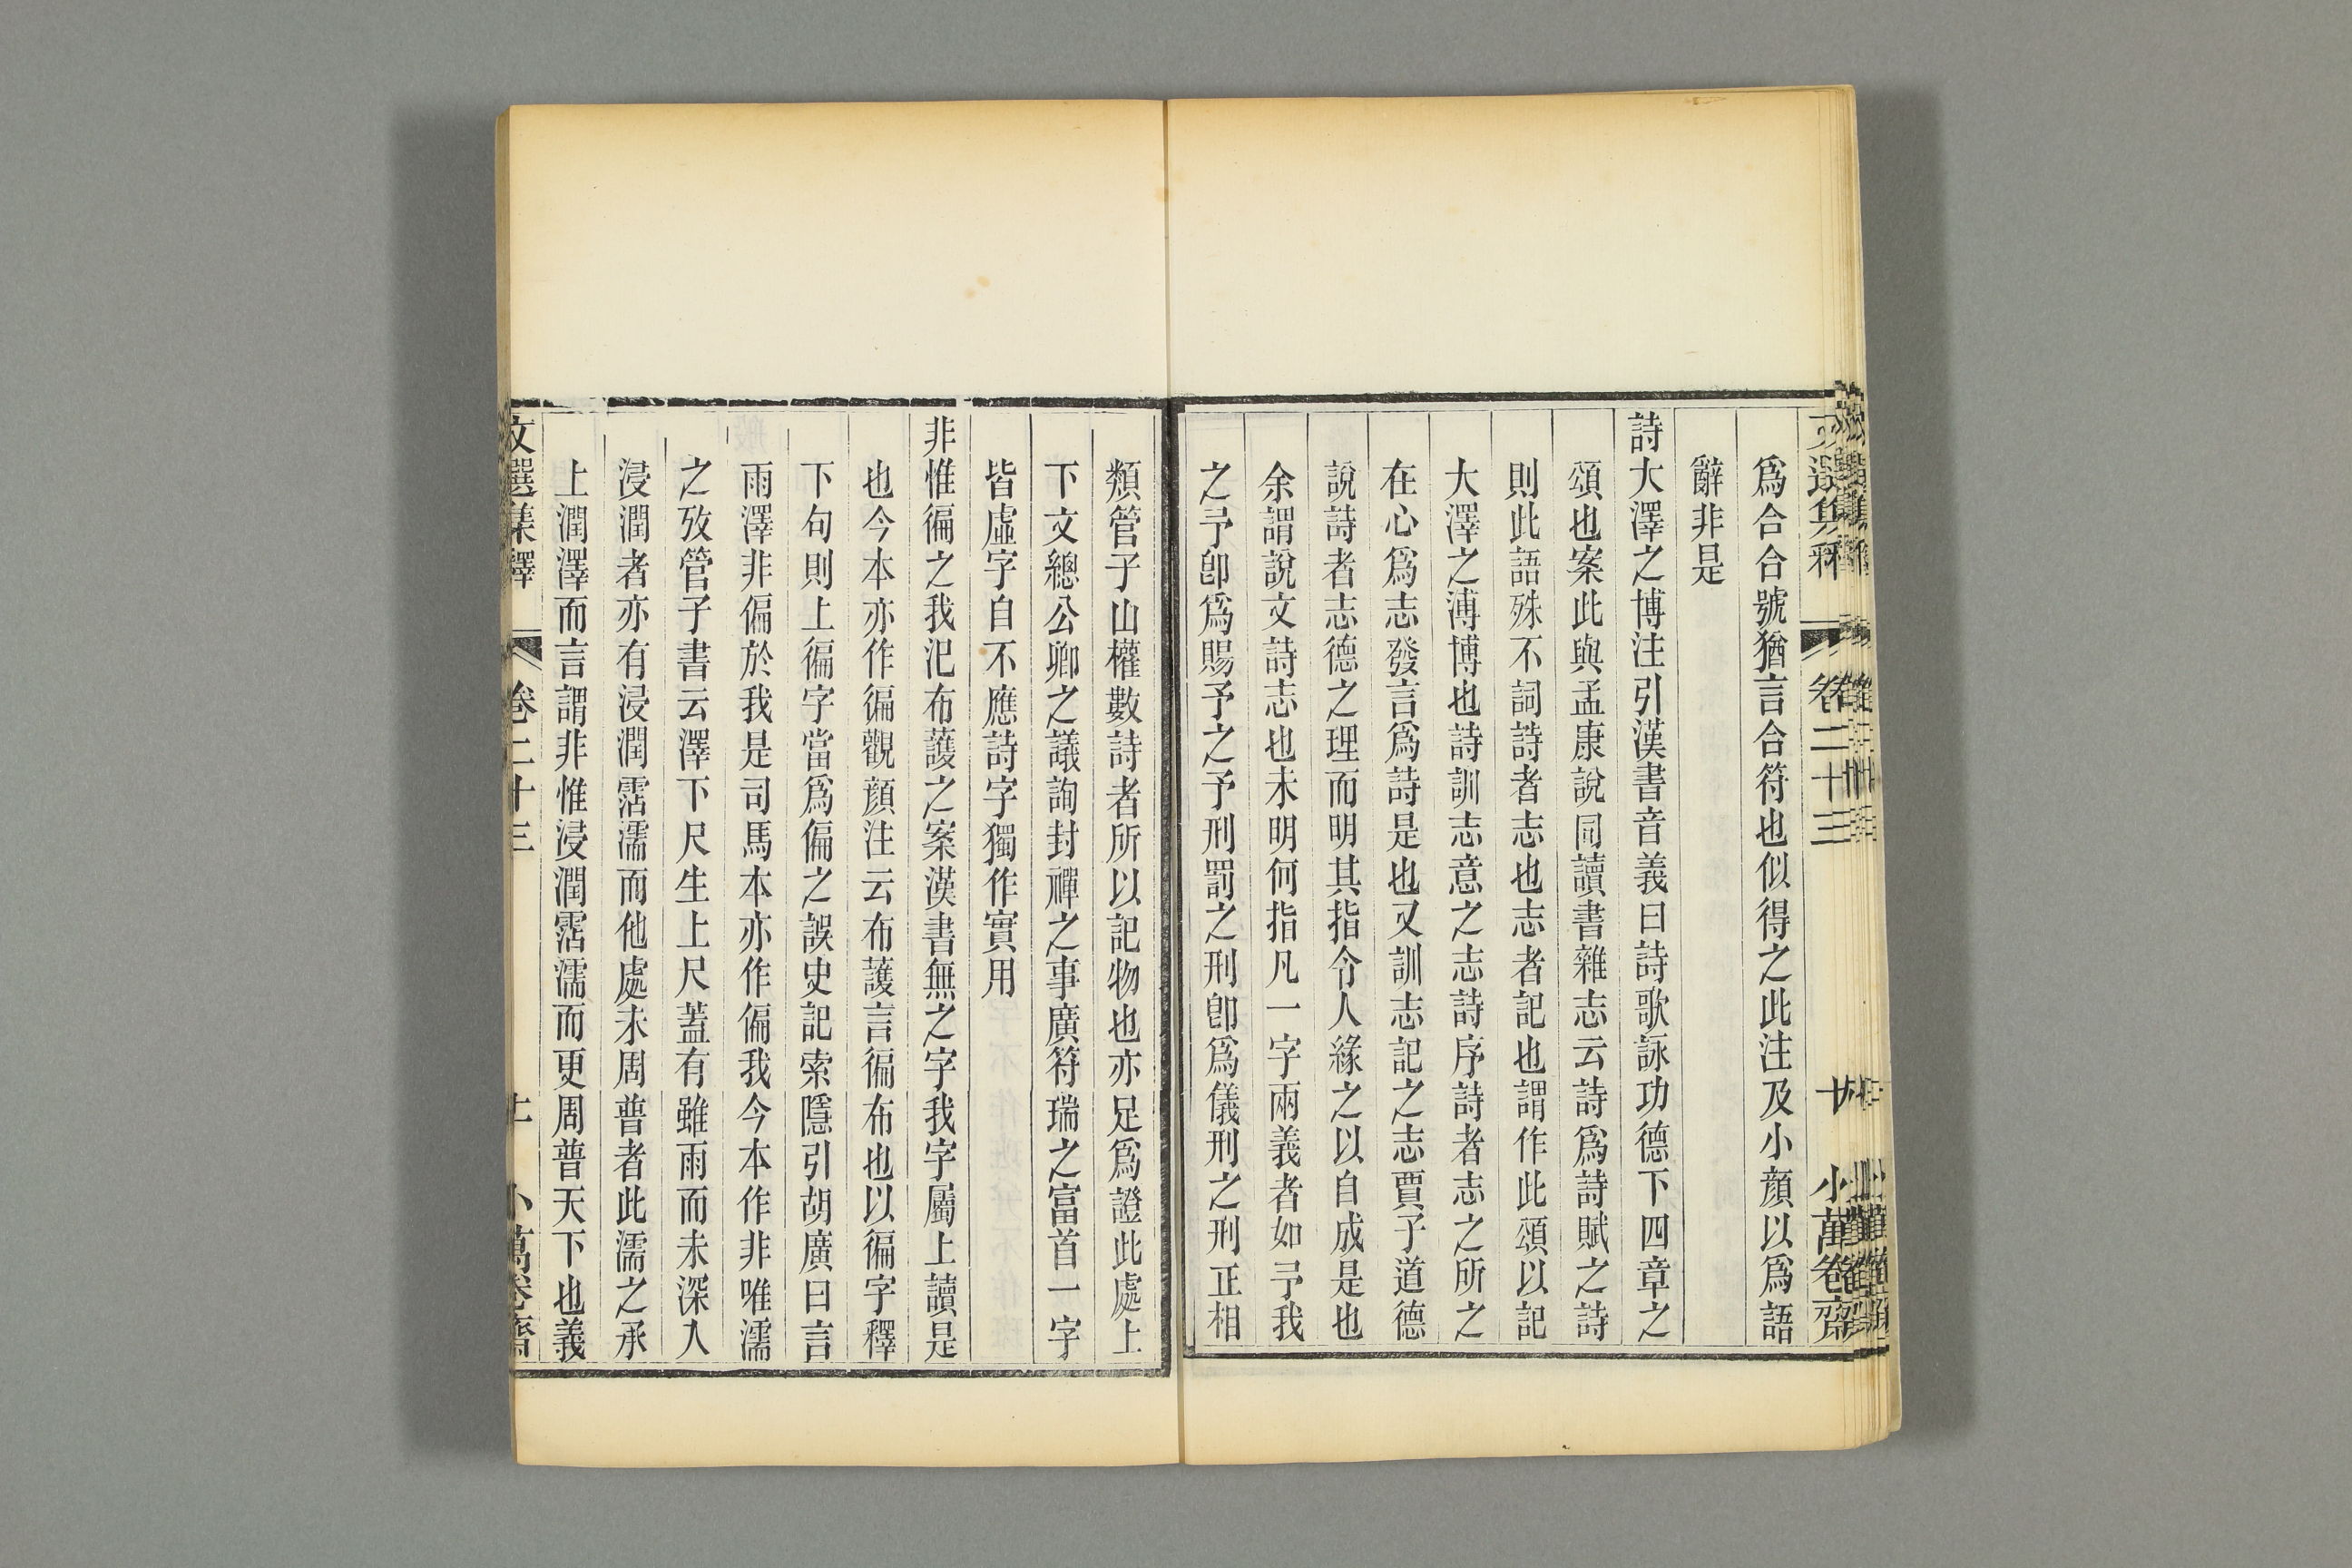 爲合合號猶言合符也似得之此注及小顏以爲語
辭非是
詩大澤之博注引漢書音義曰詩歌詠功德下四章之
頌也案此與孟康說同讀書雜志云詩爲詩賦之詩
則此語殊不詞詩者志也志者記也謂作此頌以記
大澤之溥博也詩訓志意之志詩序詩者志之所之
在心爲志發言爲詩是也又訓志記之志賈子道德
說詩者志德之理而明其指令人緣之以自成是也
余謂說文詩志也未明何指凡一字兩義者如予我
之予卽爲賜予之予刑罰之刑卽爲儀刑之刑正相
類管子山權數詩者所以記物也亦足爲證此處上
下文總公卿之議詢封禪之事廣符瑞之富首一字
皆虛字自不應詩字獨作實用
非惟徧之我氾布護之案漢書無之字我字屬上讀是
也今本亦作徧觀顏注云布護言徧布也以徧字釋
下句則上徧字當爲偏之誤史記索隱引胡廣曰言
雨澤非偏於我是司馬本亦作偏我今本作非唯濡
之攷管子書云澤下尺生上尺蓋有雖雨而未深入
浸潤者亦有浸潤霑濡而他處未周普者此濡之承
上潤澤而言謂非惟浸潤霑濡而更周普天下也義
文選集釋 卷二十三 十 小萬卷齋